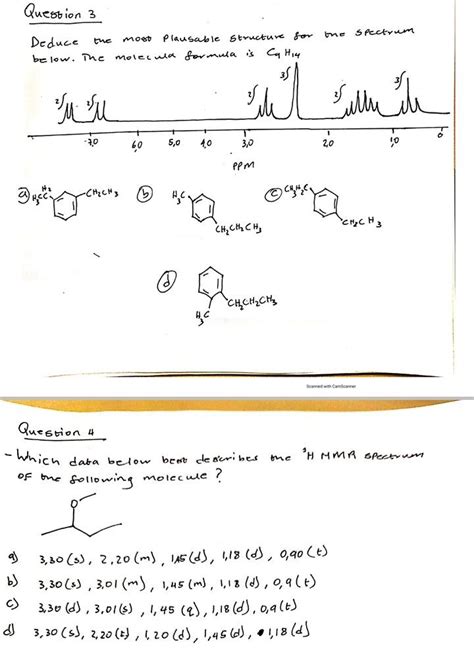 Question 3
Deduce the most Plausable structure for the spectrum
below. The molecula formula is C9 H14
2∫ 2∫ 2∫ 3∫ 2∫ 3∫
7,0 6,0 5,0 4,0 3,0 2,0 1,0 0
PPM
a) H3C H2C CH2CH3 b) H3C CH2CH2CH3 c) CH3H2C CH2CH3
d) H3C CH2CH2CH3
Scanned with CamScanner
Question 4
- Which data below best describes the 1H NMR spectrum
of the following molecule?
O
a) 3,30 (s), 2,20 (m), 1,45 (d), 1,18 (d), 0,90 (t)
b) 3,30 (s), 3,01 (m), 1,45 (m), 1,18 (d), 0,9 (t)
c) 3,30 (d), 3,01 (s), 1,45 (q), 1,18 (d), 0,9 (t)
d) 3,30 (s), 2,20 (t), 1,20 (d), 1,45 (d), 1,18 (d)